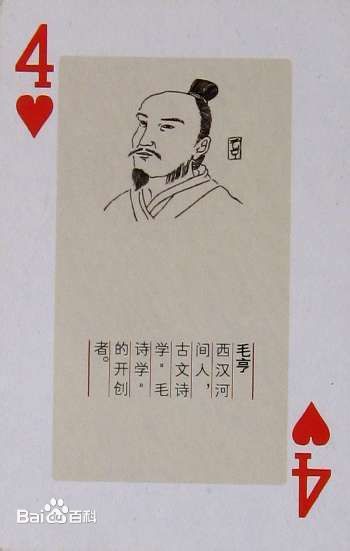 4
毛亨
西汉河
间人，
古文诗
学“毛
诗学”
的开创
者。
4
Bai百科